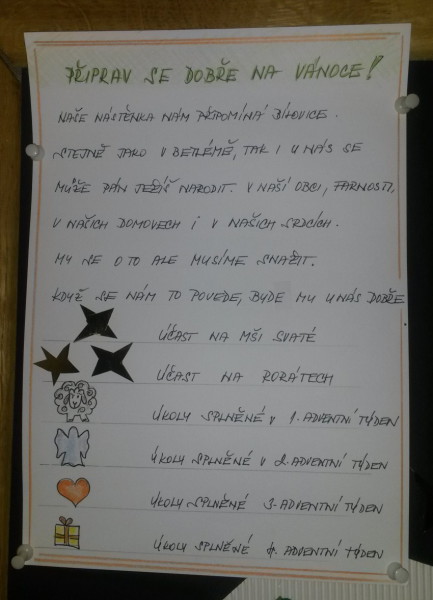 PŘIPRAV SE DOBŘE NA VÁNOCE!
NAŠE NÁSTĚNKA NÁM PŘIPOMÍNÁ BÍLOVICE.
STEJNĚ JAKO V BETLÉMĚ, TAK I U NÁS SE
MŮŽE PÁN JEŽÍŠ NARODIT. V NAŠÍ OBCI, FARNOSTI,
V NAŠICH DOMOVECH I V NAŠICH SRDCÍCH.
MY SE O TO ALE MUSÍME SNAŽIT.
KDYŽ SE NÁM TO POVEDE, BUDE MU U NÁS DOBŘE
ÚČAST NA MŠI SVATÉ
ÚČAST NA RORÁTECH
ÚKOLY SPLNĚNÉ V 1. ADVENTNÍ TÝDEN
ÚKOLY SPLNĚNÉ V 2. ADVENTNÍ TÝDEN
ÚKOLY SPLNĚNÉ 3. ADVENTNÍ TÝDEN
ÚKOLY SPLNĚNÉ 4. ADVENTNÍ TÝDEN